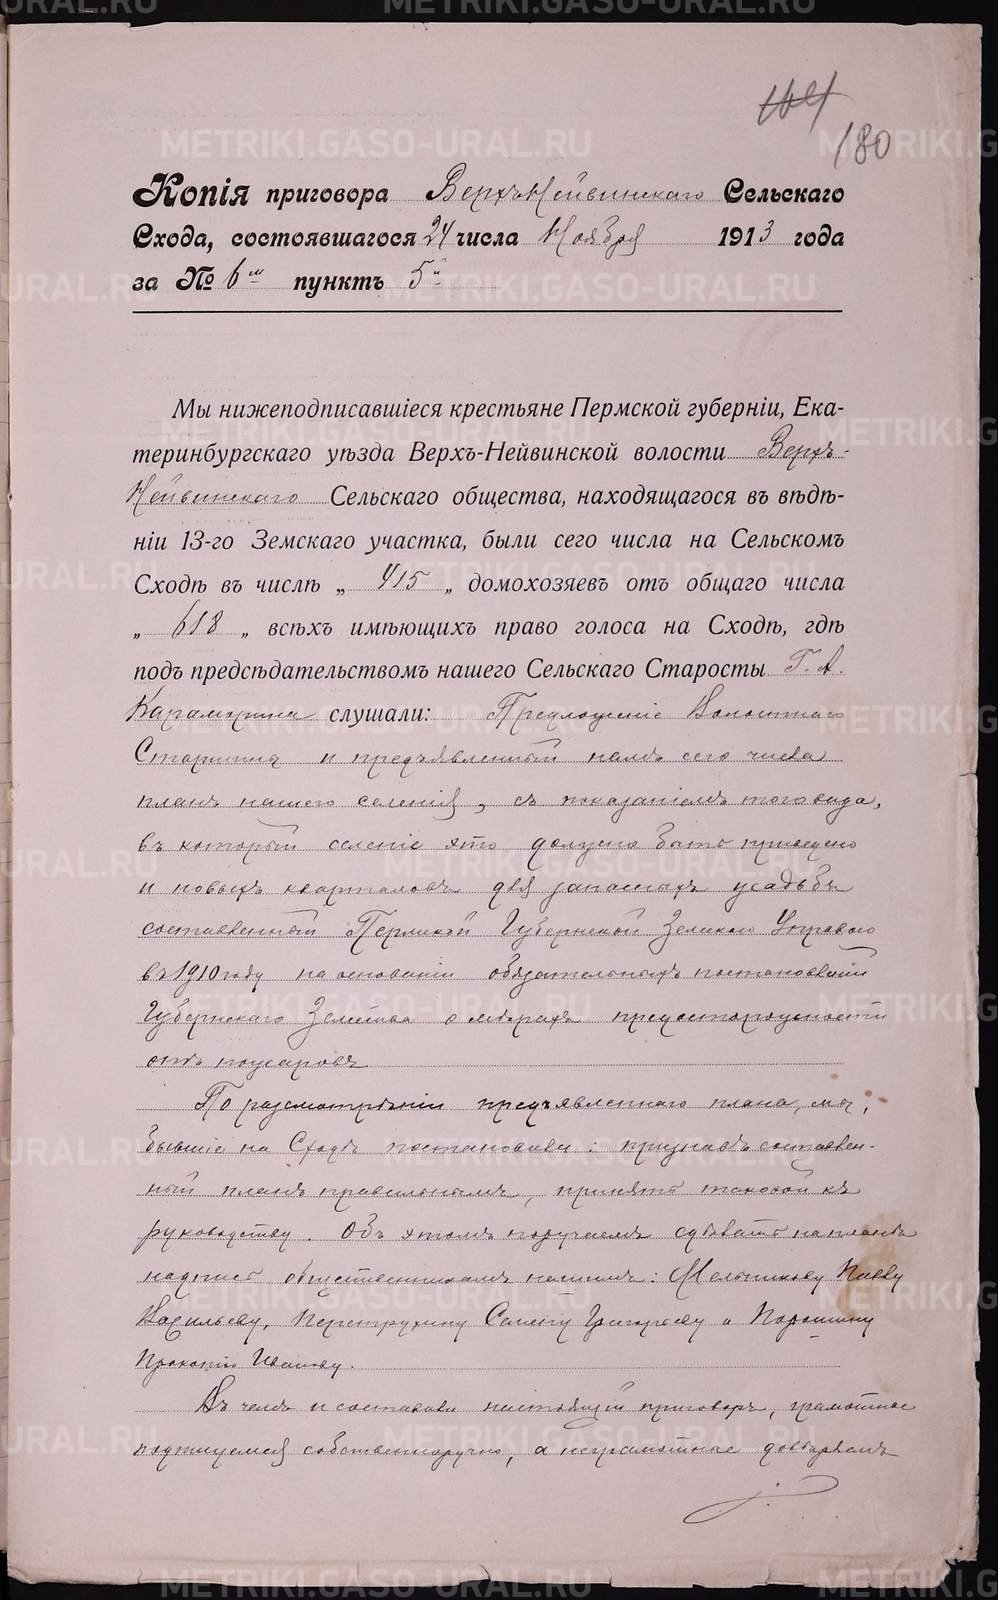 164
180
Копія приговора Верхъ-Нейвинскаго Сельскаго
Схода, состоявшагося 24 числа Ноября 1913 года
за № 6 м пунктъ 5й
Мы нижеподписавшіеся крестьяне Пермской губерніи, Ека-
теринбургскаго уѣзда Верхъ-Нейвинской волости Верхъ-
Нейвинскаго Сельскаго общества, находящагося въ вѣдѣ-
ніи 13-го Земскаго участка, были сего числа на Сельскомъ
Сходѣ въ числѣ „ 415 „ домохозяевъ отъ общаго числа
„ 618 „ всѣхъ имѣющихъ право голоса на Сходѣ, гдѣ
подъ предсѣдательствомъ нашего Сельскаго Старосты Г. А.
слушали: Предложеніе Волостнаго
Старшины и предъявленный намъ сего числа
планъ нашего селенія, съ показаніемъ того вида,
въ который селеніе это должно быть приведено
и новыхъ кварталовъ для запасныхъ усадьбъ
составленный Пермской Губернской Земской Управою
въ 1910 году на основаніи обязательныхъ постановленій
Губернскаго Земства о мѣрахъ предосторожности
отъ пожаровъ
По разсмотрѣніи предъявленнаго плана, мы,
бывшіе на Сходѣ постановили: признавъ составлен-
ный планъ правильнымъ, принять таковой къ
руководству. Объ этомъ поручаемъ сдѣлать на планѣ
надпись общественникамъ нашимъ: Мельникову Павлу
Васильеву, Перетрухину Семену Григорьеву и Паршину
Прокопію Иванову.
Въ чемъ и составили настоящій приговоръ, грамотные
подпишемся собственноручно, а неграмотные довѣряемъ
METRIKI.GASO-URAL.RU